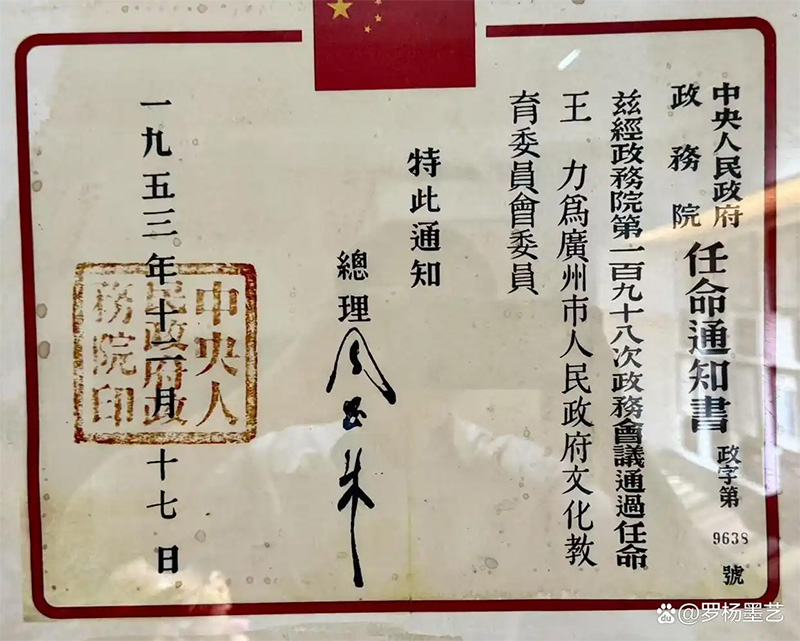 中央人民政府
政務院
任命通知書
政字第
9638
號
兹經政務院第一百九十八次政務會議通過任命
王 力爲廣州市人民政府文化教
育委員會委員
特此通知
總理
周恩来
一九五三年十二月十七日
中央人
民政府政
務院印
@罗杨墨艺